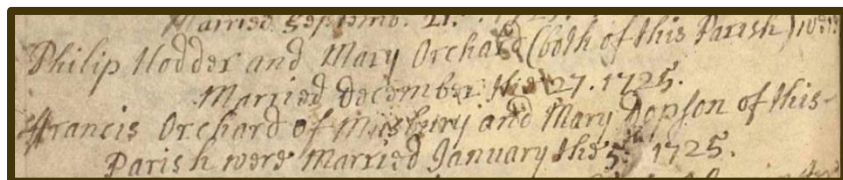 Married Septemb. 21. 1725.
Philip Hodder and Mary Orchard (both of this Parish) were
Married December the 27. 1725.
ffrancis Orchard of Musbury and Mary Dopson of this
Parish were Married January the 5. 1725.